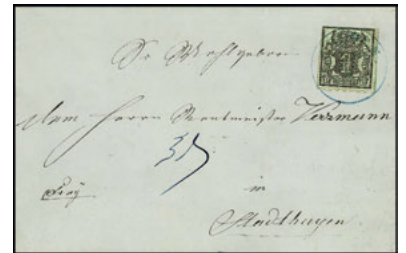 Sr Wohlgeboren
dem Herrn Rentmeister Herrmann
Frey
in
Stadthagen